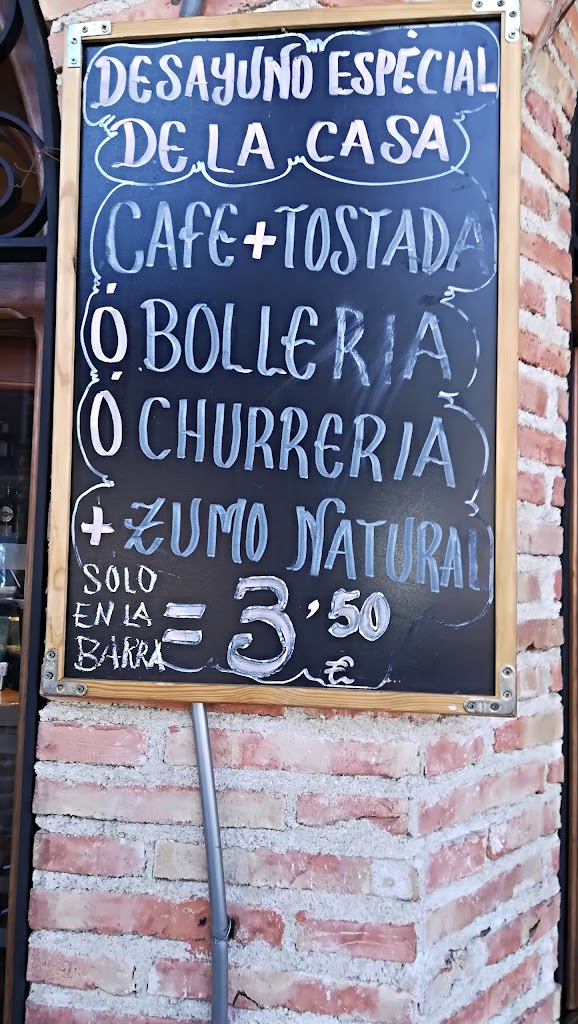 DESAYUNO ESPÉCIAL
DE LA CASA
CAFE + TOSTADA
Ó BOLLERIA
Ó CHURRERIA
+ ZUMO NATURAL
SOLO
EN LA
BARRA
= 3,50
€